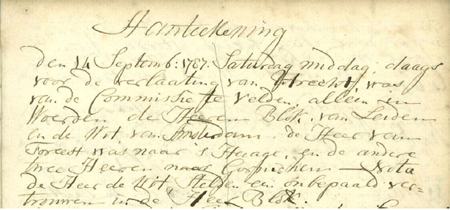 Aanteekening
den 14 Septemb: 1787. Saturdag middag, daags
voor de verlaating van Utrecht, was
van de Commissie te velden, alleen in
Woerden de Heeren Blok, van Leiden
en de Wit, van Amsterdam. de Heer van
Foreest was naar 's Hage, en de andere
twee Heeren naar Gorinchem — Nota
de Heer de Wit stelden een onbepaald ver-
trouwen in de Heer Blok.